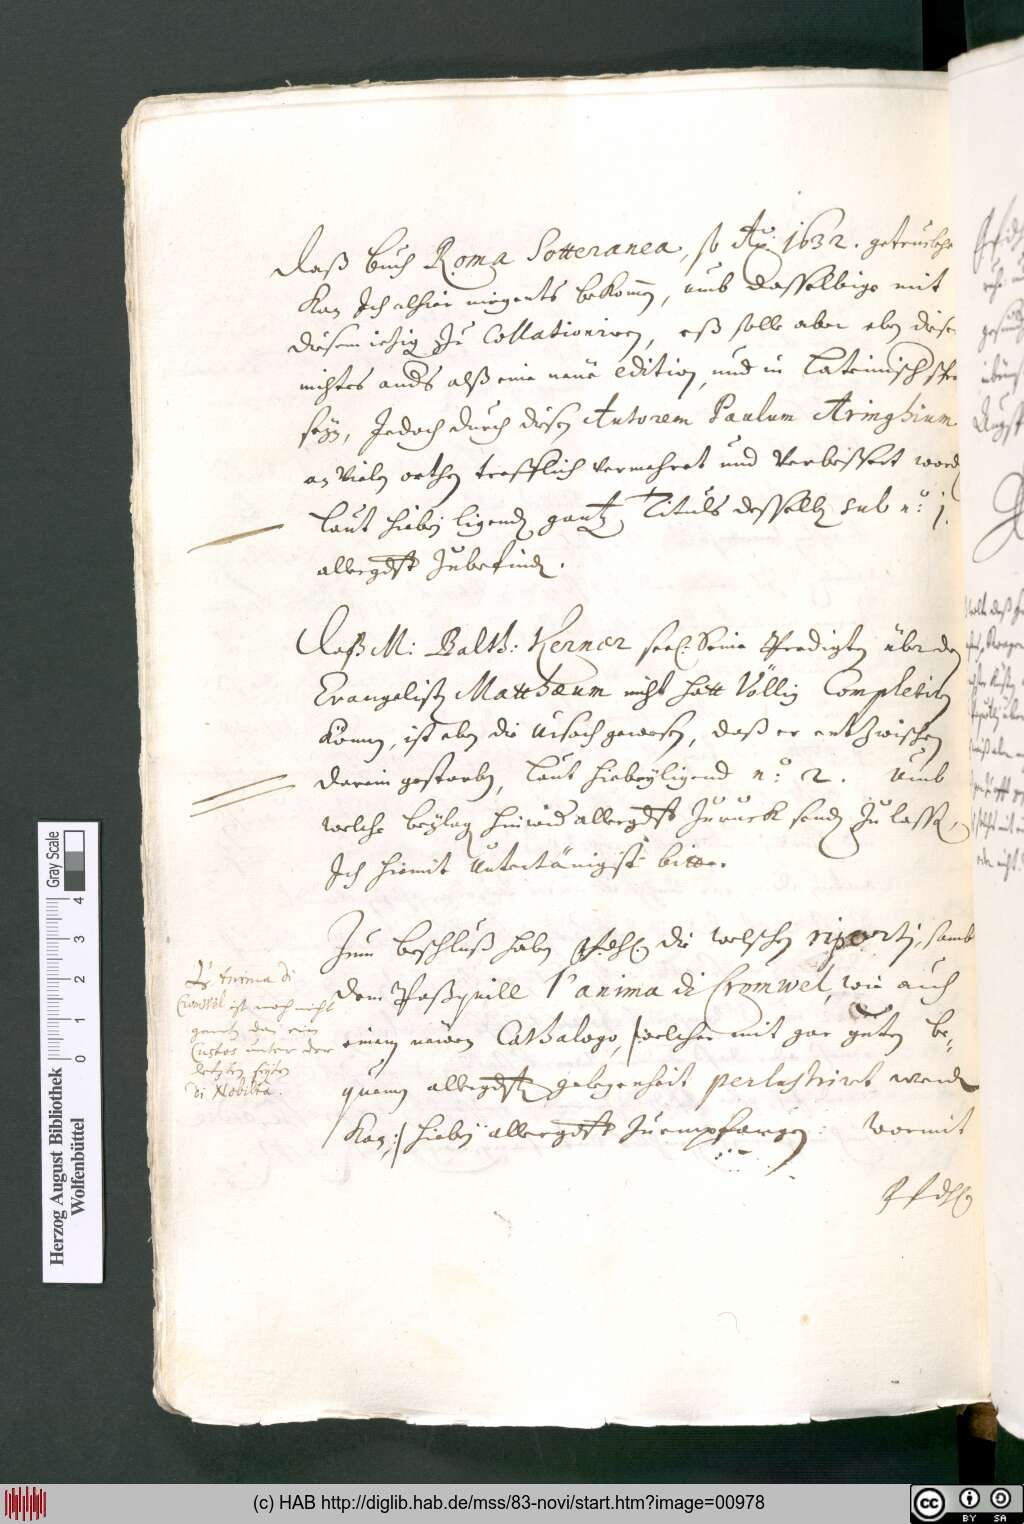 Daß buch Roma Sotteranea, so Aō: 1632. getruckht
Kan Ich alhier nirgents bekommen, umb dasselbige mit
diesem iezig zu Collationiren, eß solle aber eben dises
nichtes anders alß eine neüe edition, und in Lateinisch
seyn, Jedoch durch disen Autorem Paulum Aringhium
an vielen orthen trefflich vermehret und verbessert word
laut hiebey ligend gantz Tituls desselb sub nº: 1.
allergdst zubefinden.
Daß M: Balth: Kerner seel: Seine Predigten über den
Evangelisten Matthæum nicht hatt Völlig Completiren
können, ist eben die Ursach gewesen, daß er entzwischen
darein gestorben, laut hiebeyligend nº: 2. Umb
welche beylag hinwid allergdst zuruck senden zu lassen,
Ich hiemit Untertänigst bitte.
Zum beschluß haben die welschen riporti, sambt
dem Paßquill l'anima di Cromwel, wie auch
einem newen Cathalogo, /:welcher mit gar guten be-
quemer allergdst gelegenheit perlustrirt werden
Kan:/ hiebey allergdst zu empfangen: Wormit
L'Anima di
Cromwel ist noch nicht
gantz den ein
Custos unter der
letzten seyten
di Nobiltà.
Herzog August Bibliothek
Wolfenbüttel
0 1 2 3 4
Gray Scale
(c) HAB http://diglib.hab.de/mss/83-novi/start.htm?image=00978
CC BY SA